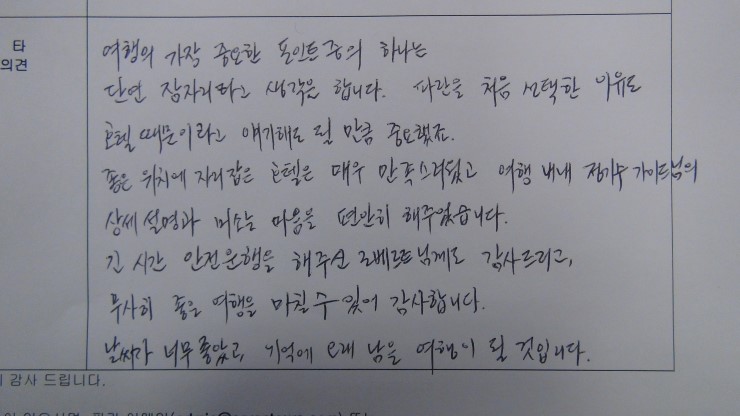 타
의견
여행의 가장 중요한 포인트 중의 하나는
단연 잠자리라고 생각은 합니다. 파란을 처음 선택한 이유도
호텔 때문이라고 얘기해도 될 만큼 중요했죠.
좋은 위치에 자리잡은 호텔은 매우 만족스러웠고 여행 내내 가이드님의
상세 설명과 미소는 마음을 편안히 해주었습니다.
긴 시간 안전운행을 해주신 로베르토님께도 감사드리고,
무사히 좋은 여행을 마칠 수 있어 감사합니다.
날씨가 너무 좋았고, 기억에 오래 남을 여행이 될 것입니다.
감사 드립니다.